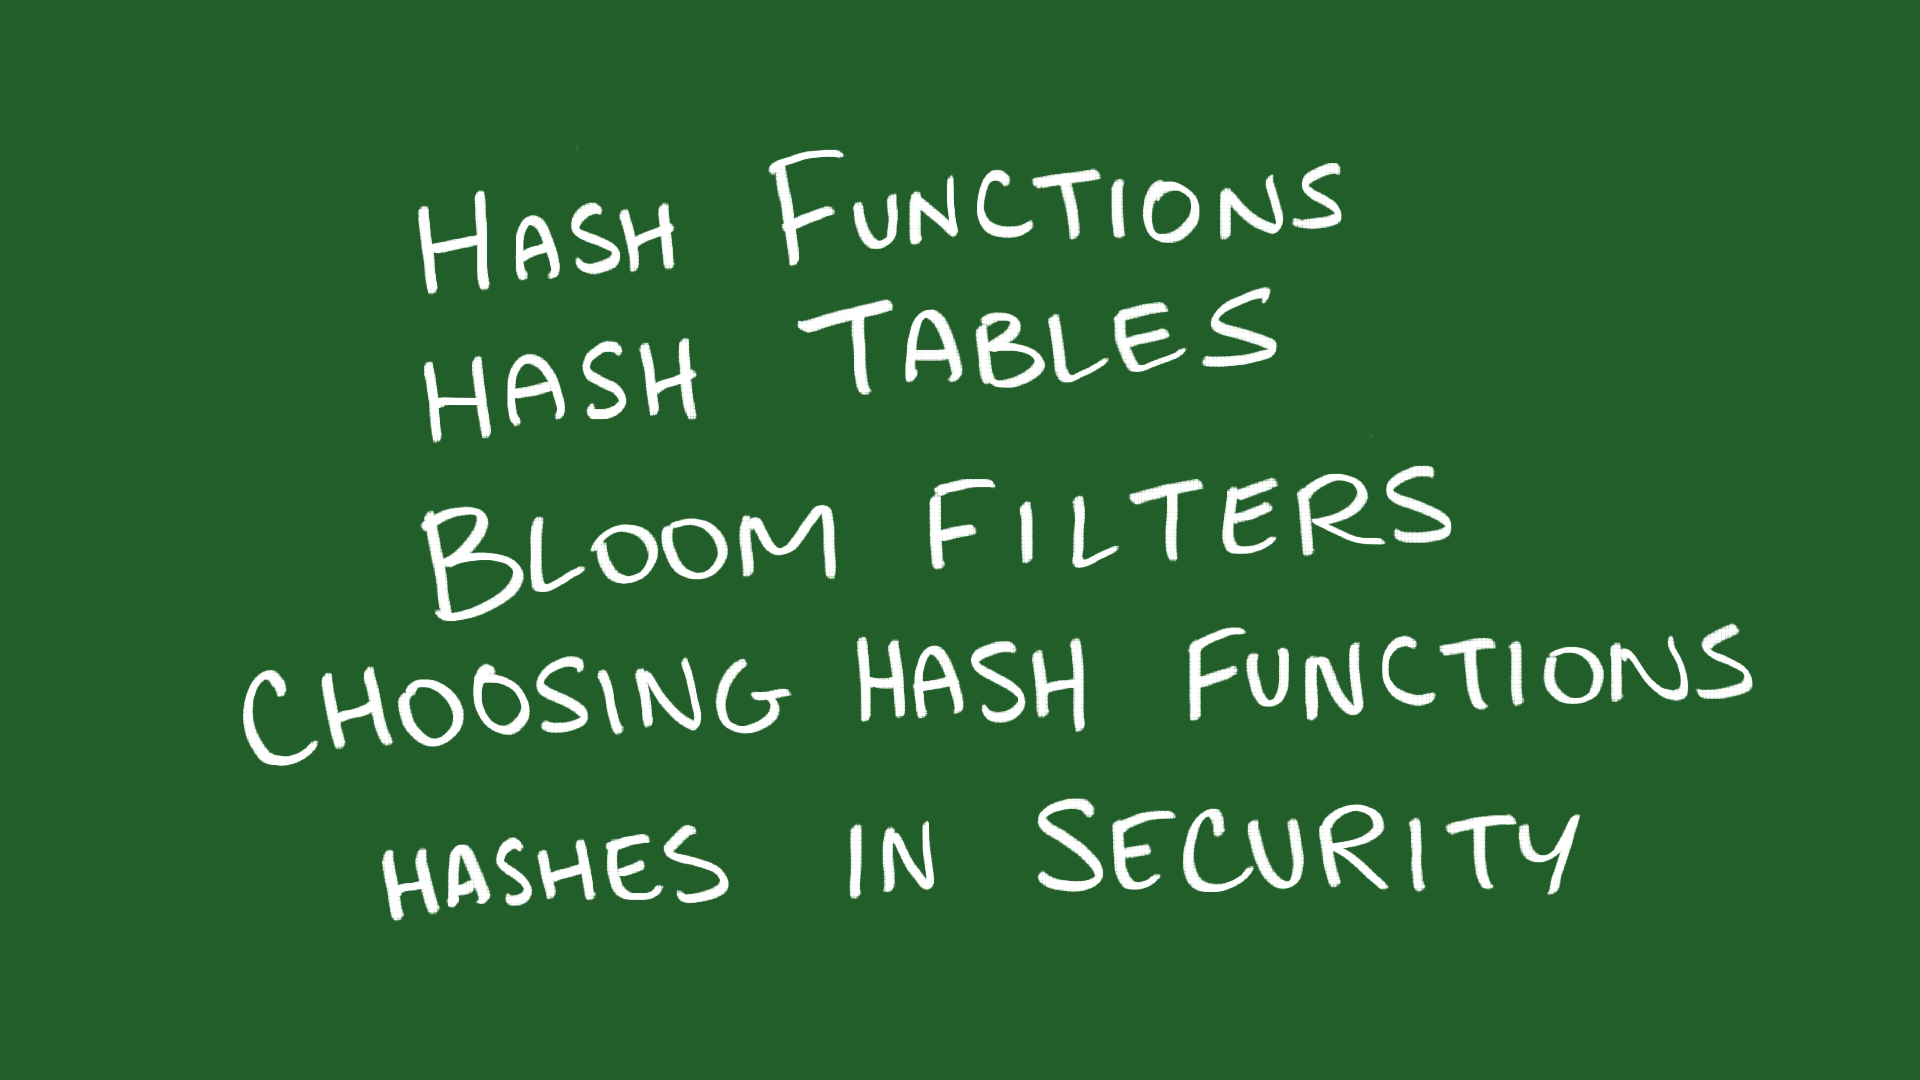 Hash Functions
Hash Tables
Bloom Filters
Choosing Hash Functions
Hashes in Security